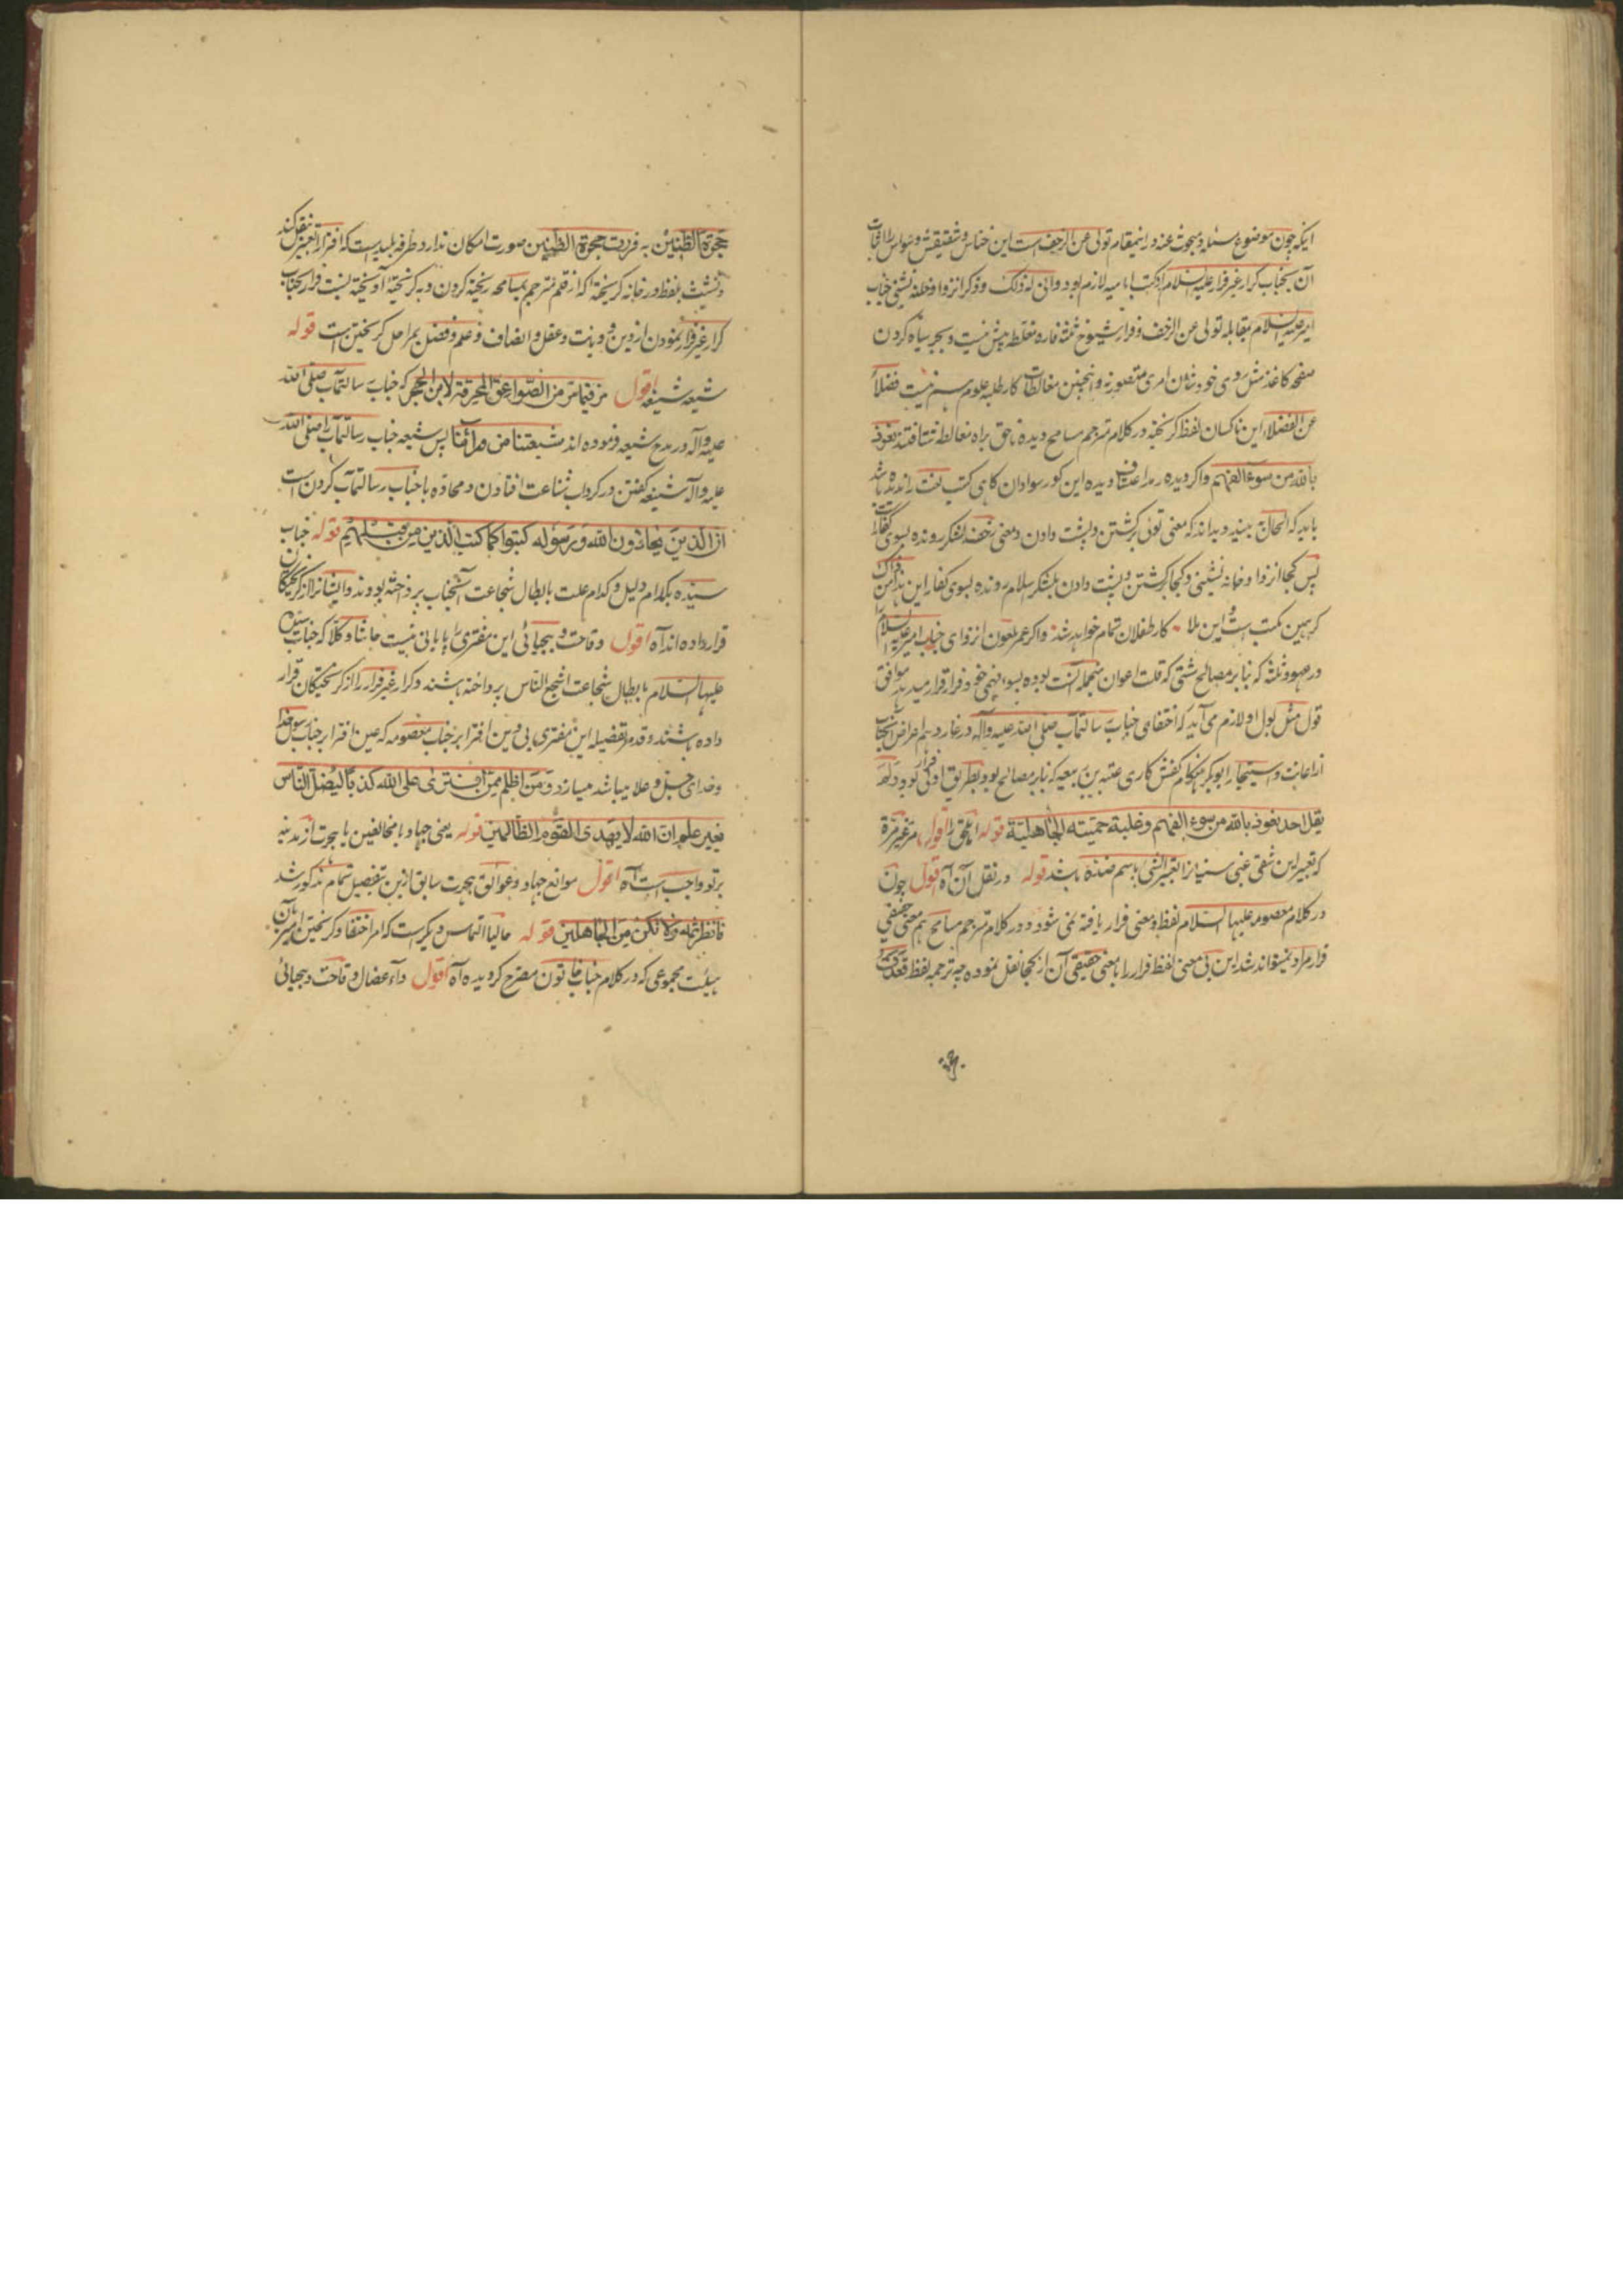 اینکه چون موضوع مسئله و مبحوث عنه در اینمقام تولی عن الزحف است این خناس و شقیقش وسواس را اثبات
آن بجناب کرار غیر فرار علیه السلام از کتب امامیه لازم بود و انی له ذلک و ذکر انزوا و خانه نشینی جناب
امیر علیه السلام بمقابله تولی عن الزحف و فرار شیوخ ثلثه فاره مغلطه بیش نیست و بجز سیاه کردن
صفحه کاغذ مثل روی خود شان امری متصور نه و اینچنین مغالطات کار طلبه علوم هم نیست فضلاً
عن الفضلاء این ناکسان لفظ گریخته در کلام مترجم مسامح دیده ناحق براه مغالطه شتافتند نعوذ
بالله من سوء الفهم و اگر دیده این کور سوادان گاهی کتب لغت ندیده باشد
باید که الحال ببیند و بداند که معنی تولی برگشتن و پشت دادن و معنی زحف لشکر رونده بسوی کفار
پس کجا انزوا و خانه نشینی و کجا برگشتن و پشت دادن بلشکر اسلام رونده بسوی کفار این
گر همین مکتب است و این ملا کار طفلان تمام خواهد شد و اگر عمر ملعون انزوای جناب امیر علیه السلام
در عهود ثلثه که بنابر مصالح شتی که قلت اعوان منجمله آنست بوده بسوء فهمی خود فرار قرار میدهد موافق
قول مثل بول او لازم می آید که اختفای جناب رسالتمآب صلی الله علیه وآله در غار و هم اعراض آنجناب
از اعانت و استیجار ابوبکر هنگام کفش کاری عتبه بن ربیعه که بنابر مصالح بود بطریق اولی فرار بود و لم
یقل احد نعوذ بالله من سوء الفهم و غلبة حمیته الجاهلیة قوله اقول مر غیر مرة
که تعبیر این شقی غبی سنیان از تعبیر الشی باسم ضده باشد قوله در نقل آن آه اقول چون
در کلام معصومه علیها السلام لفظ و معنی فرار یافته نمی شود و در کلام مترجم مسامح هم معنی حقیقی
فرار مراد نمیتواند شد این بی معنی لفظ فرار را بمعنی حقیقی آن از کجا نقل نموده چه ترجمه لفظ قعدت
حجرة الظنین به فررت حجرة الظنین صورت امکان ندارد طرفه پلیدیست که افترا را تعبیر بنقل کند
و تشبث بلفظ در خانه گریخته که از قلم مترجم بمسامحه ریخته کردن و به گریخته آویخته نسبت فرار بجناب
کرار غیر فرار نمودن از دین و دیانت و عقل و انصاف و علم و فضل بمراحل گریختن است قوله
شیعه شنیعه اقول مر فیما مر من الصواعق المحرقة لابن الحجر که جناب رسالتمآب صلی الله
علیه وآله در مدح شیعه فرموده اند پس شیعه جناب رسالتمآب را صلی الله
علیه وآله شنیعه گفتن در گرداب شناعت افتادن و محاده با جناب رسالتمآب کردن است
ان الذین یحادون الله و رسوله کبتوا کما کبت الذین من قبلهم قوله جناب
سیده بکدام دلیل و کدام علت بابطال شجاعت آنجناب پرداخته بودند و ایشانرا از گریختگان
قرار داده اند آه اقول وقاحت و بیحیائی این مفتری را پایانی نیست حاشا و کلا که جناب سیده
علیها السلام بابطال شجاعت اشجع الناس پرداخته باشند و کرار غیر فرار را از گریختگان قرار
داده باشند و قد مر تفضیله این مفتری بی دین افترا بر جناب معصومه که عین افترا بر جناب رسول خدا
و خدای جل و علا میباشد میسازد و من اظلم ممن افتری علی الله کذبا لیضل الناس
بغیر علم ان الله لا یهدی القوم الظالمین قوله یعنی جهاد با مخالفین یا هجرت از مدینه
بر تو واجب است آه اقول موانع جهاد و عوائق هجرت سابق ازین بتفصیل تمام مذکور شد
فانظر ثمه و لا تکن من الجاهلین قوله حالیا التماس دیگر است که امر اختفا و گریختن
هیئت مجموعی که در کلام جناب خاتون مصرح گردیده آه اقول داء عضال وقاحت و بیحیائی